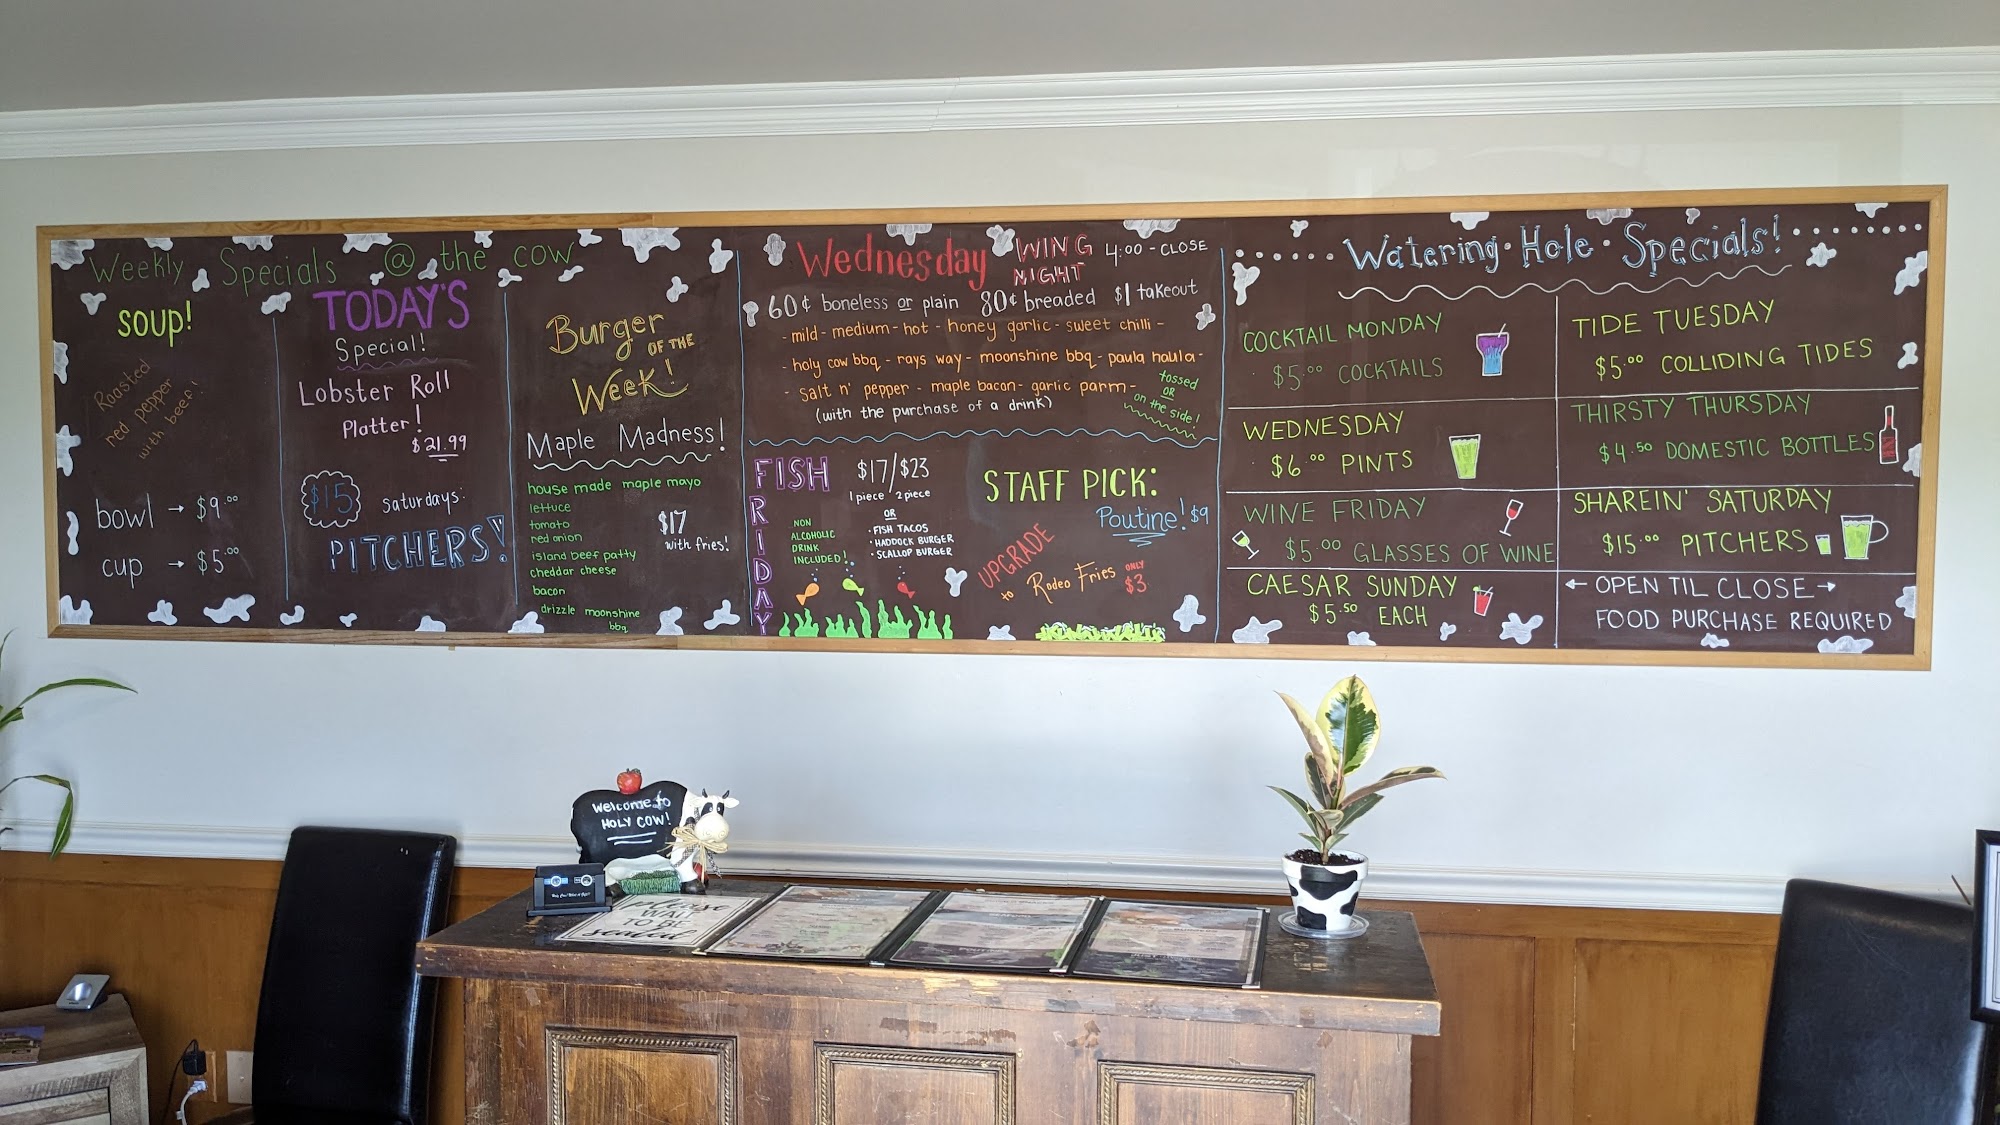 Weekly Specials @ the cow
SOUP!
Roasted
red pepper
with beef!
bowl → $9.00
cup → $5.00
TODAY'S
Special!
Lobster Roll
Platter!
$21.99
$15 saturdays:
PITCHERS!
Burger
OF THE
Week!
Maple Madness!
house made maple mayo
lettuce
tomato
red onion
island beef patty
cheddar cheese
bacon
drizzle moonshine
bbq
$17
with fries!
Wednesday WING NIGHT 4:00 - CLOSE
60¢ boneless or plain 80¢ breaded $1 takeout
- mild - medium - hot - honey garlic - sweet chilli -
- holy cow bbq - rays way - moonshine bbq - paula haula -
- salt n' pepper - maple bacon - garlic parm -
(with the purchase of a drink)
tossed
OR
on the side!
FISH
FRIDAY
$17/$23
1 piece 2 piece
OR
• FISH TACOS
• HADDOCK BURGER
• SCALLOP BURGER
NON
ALCOHOLIC
DRINK
INCLUDED!
STAFF PICK:
Poutine! $9
UPGRADE
to Rodeo Fries ONLY
$3
Watering • Hole • Specials!
COCKTAIL MONDAY
$5.00 COCKTAILS
TIDE TUESDAY
$5.00 COLLIDING TIDES
WEDNESDAY
$6.00 PINTS
THIRSTY THURSDAY
$4.50 DOMESTIC BOTTLES
WINE FRIDAY
$5.00 GLASSES OF WINE
SHAREIN' SATURDAY
$15.00 PITCHERS
CAESAR SUNDAY
$5.50 EACH
← OPEN TIL CLOSE →
FOOD PURCHASE REQUIRED
Welcome to
HOLY COW!
please
WAIT
TO BE
seated